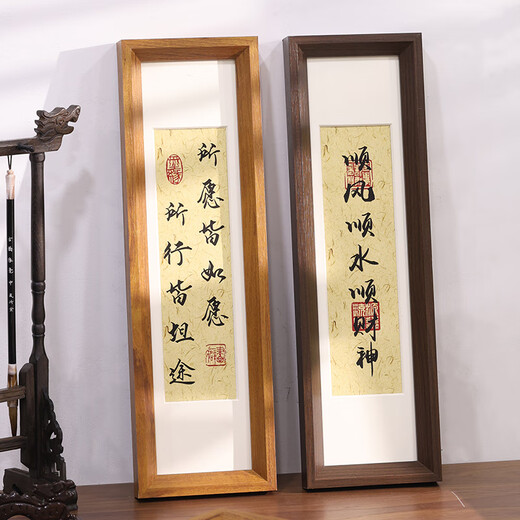 所愿皆如愿
所行皆坦途
顺风顺水顺财神